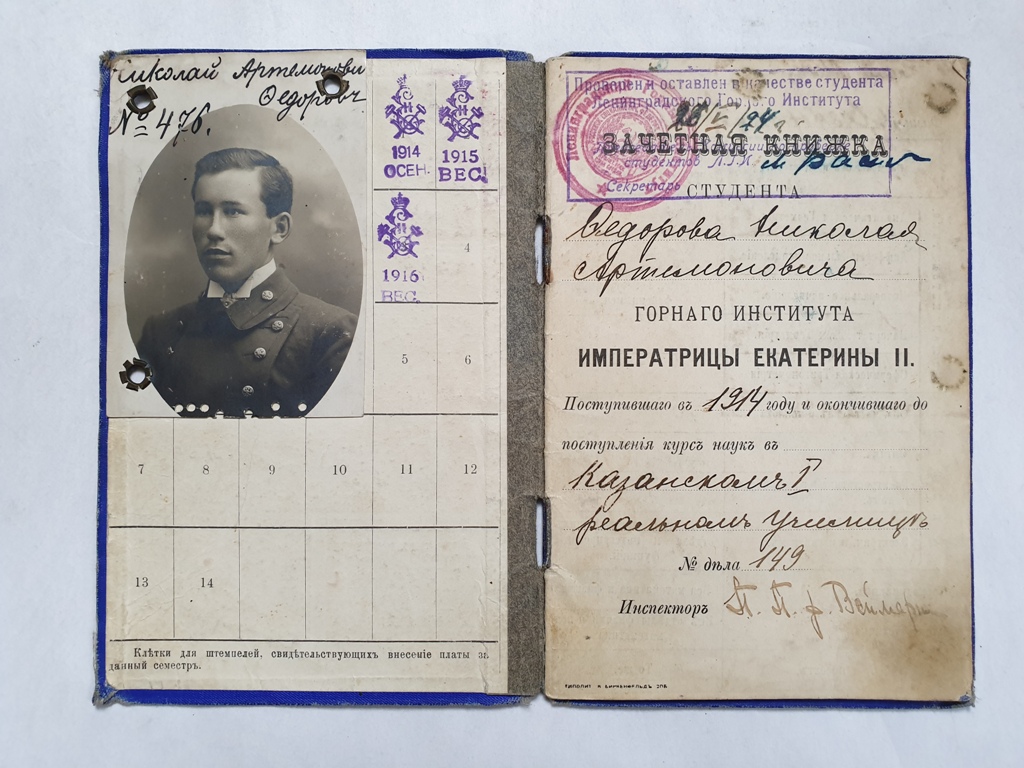 Николай Артемонович
Федоровъ
№ 476.
1914
ОСЕН.
1915
ВЕС.
1916
ВЕС.
4
5
6
7
8
9
10
11
12
13
14
Клѣтки для штемпелей, свидѣтельствующихъ внесеніе платы за
данный семестръ.
Проверен и оставлен в качестве студента
Ленинградского Горного Института
26/V 24 г.
ЗАЧЕТНАЯ КНИЖКА
студентов Л.Г.И.
Секретарь
СТУДЕНТА
Федорова Николая
Артемоновича
ГОРНАГО ИНСТИТУТА
ИМПЕРАТРИЦЫ ЕКАТЕРИНЫ II.
Поступившаго въ 1914 году и окончившаго до
поступленія курсъ наукъ въ
Казанскомъ I
реальномъ училищѣ
№ дѣла 149
Инспекторъ П. П. ф. Веймарн